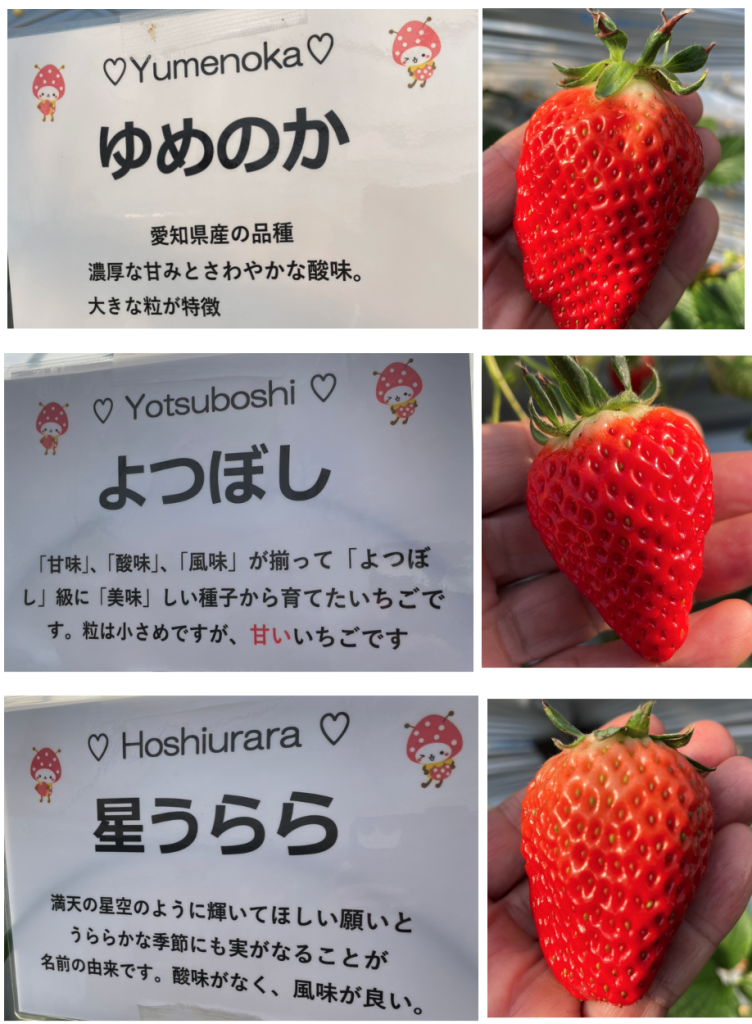 ♡Yumenoka♡
ゆめのか
愛知県産の品種
濃厚な甘みとさわやかな酸味。
大きな粒が特徴
♡ Yotsuboshi ♡
よつぼし
「甘味」、「酸味」、「風味」が揃って「よつぼ
し」級に「美味」しい種子から育てたいちごで
す。粒は小さめですが、甘いいちごです
♡ Hoshiurara ♡
星うらら
満天の星空のように輝いてほしい願いと
うららかな季節にも実がなることが
名前の由来です。酸味がなく、風味が良い。